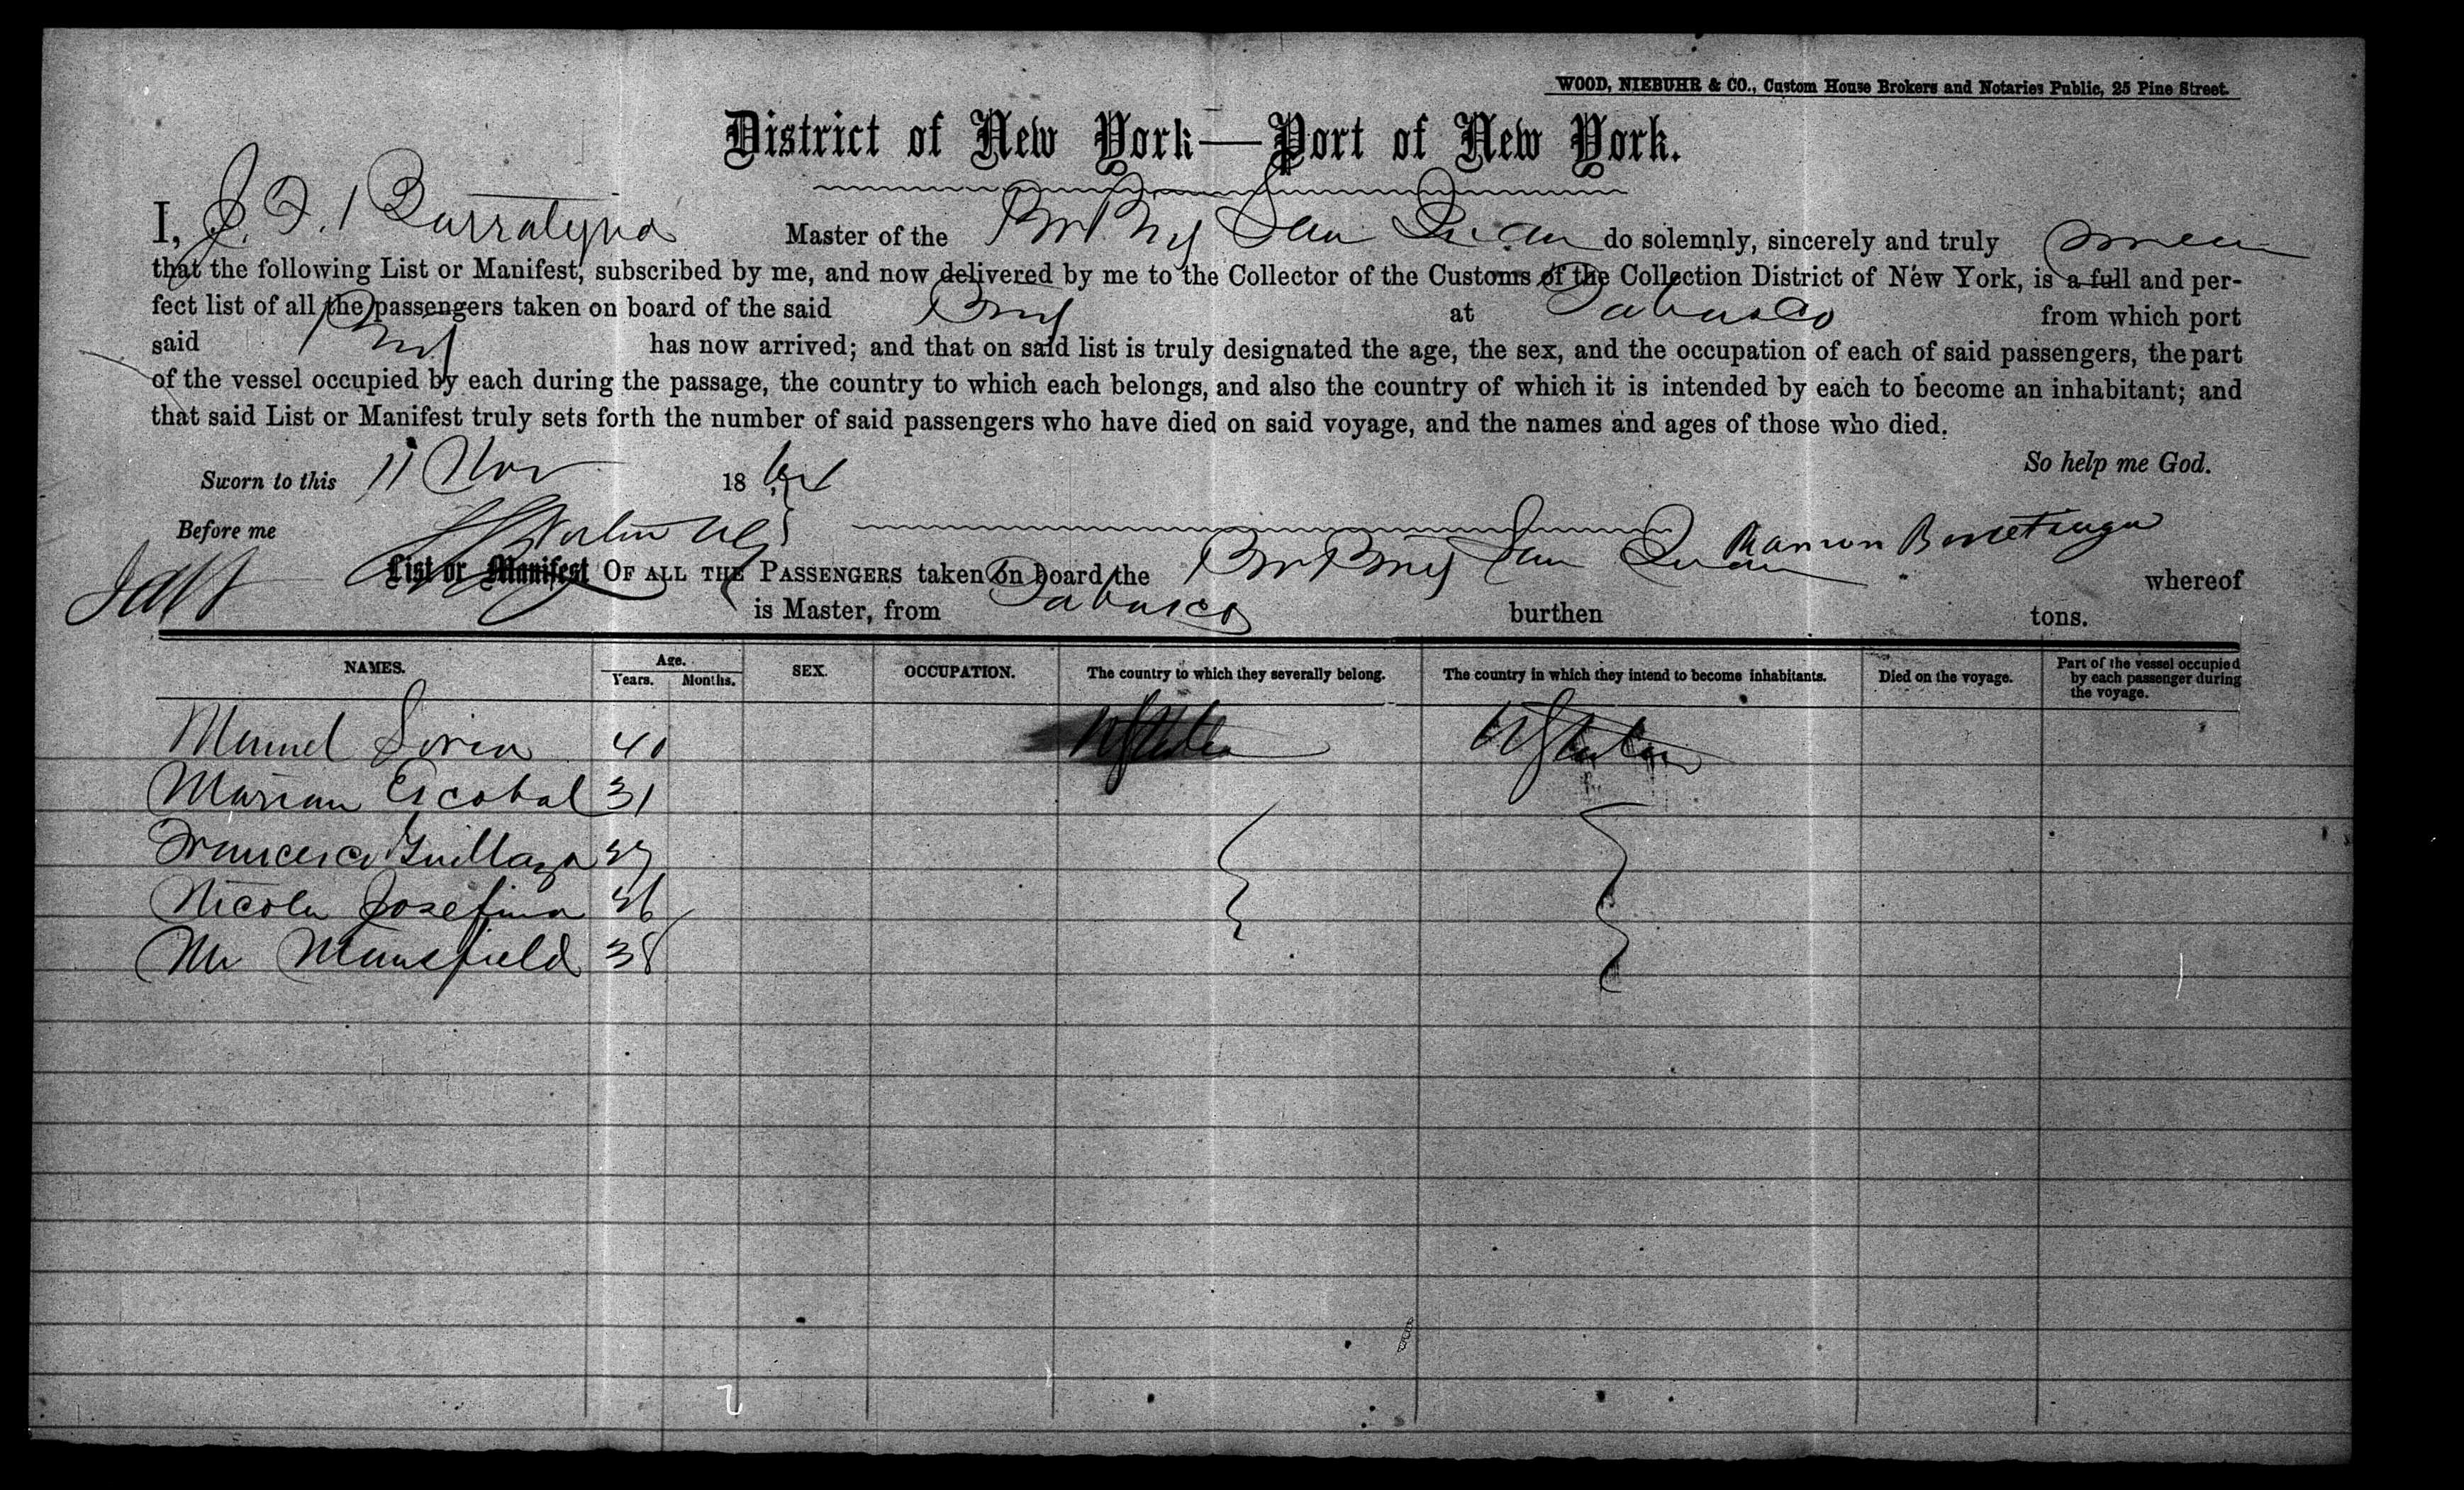 WOOD, NIEBUHR & CO., Custom House Brokers and Notaries Public, 25 Pine Street.
District of New York—Port of New York.
I, J. F. Master of the Br Brig San Juan do solemnly, sincerely and truly swear
that the following List or Manifest, subscribed by me, and now delivered by me to the Collector of the Customs of the Collection District of New York, is a full and per-
fect list of all the passengers taken on board of the said Brig at Tabasco from which port
said Brig has now arrived; and that on said list is truly designated the age, the sex, and the occupation of each of said passengers, the part
of the vessel occupied by each during the passage, the country to which each belongs, and also the country of which it is intended by each to become an inhabitant; and
that said List or Manifest truly sets forth the number of said passengers who have died on said voyage, and the names and ages of those who died.
So help me God.
Sworn to this 11 Nov 1864
Before me
Ramon
List or Manifest OF ALL THE PASSENGERS taken on board the Br Brig San Juan whereof
is Master, from Tabasco burthen tons.
NAMES. Age. Years. Months. SEX. OCCUPATION. The country to which they severally belong. The country in which they intend to become inhabitants. Died on the voyage. Part of the vessel occupied by each passenger during the voyage.
Manuel Soria 40 U States
Marian Escobal 31
Francisco 27
Nicola Josefina 26
Mr Mansfield 38